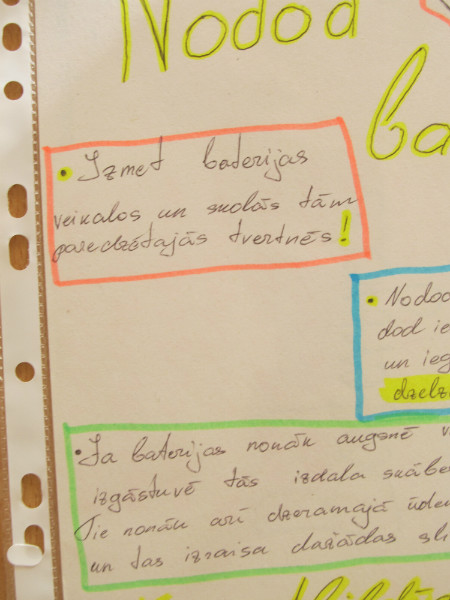 Nodod
ba
• Izmet baterijas
veikalos un skolās tām
paredzētajās tvertnēs!
• Nodod
dod ie
un ieg
dzelz
• Ja baterijas nonāk augsnē v
izgāstuvē tās izdala skābe
Tie nonāk arī dzeramajā ūden
un tas izraisa dažādas sl